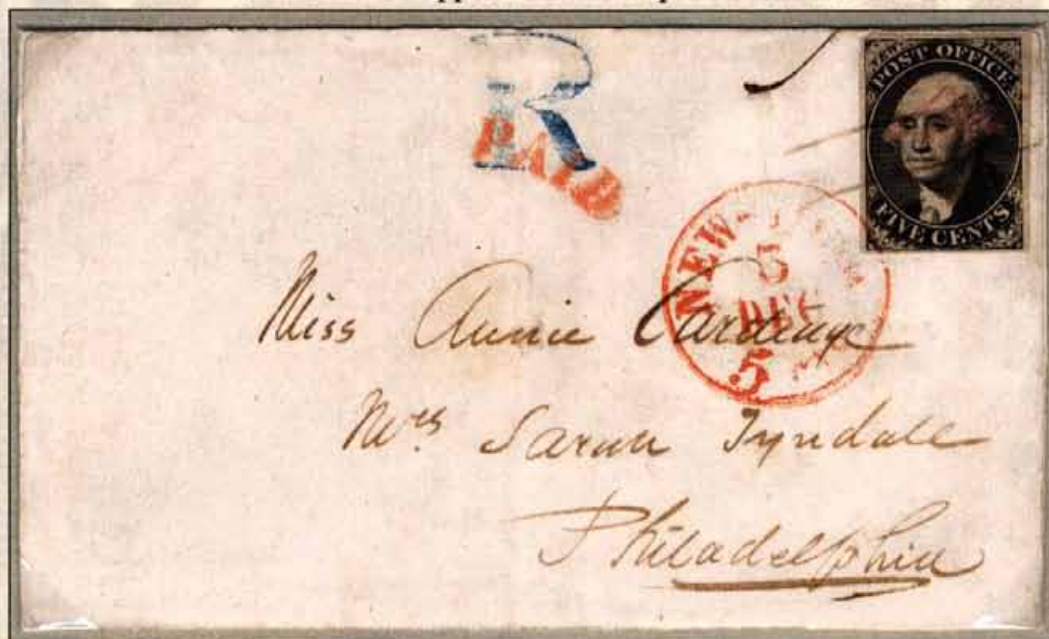 R
PAID
POST OFFICE
FIVE CENTS
NEW-YORK
5
DEC
5
Miss Annie
Mrs Sarah Tyndale
Philadelphia